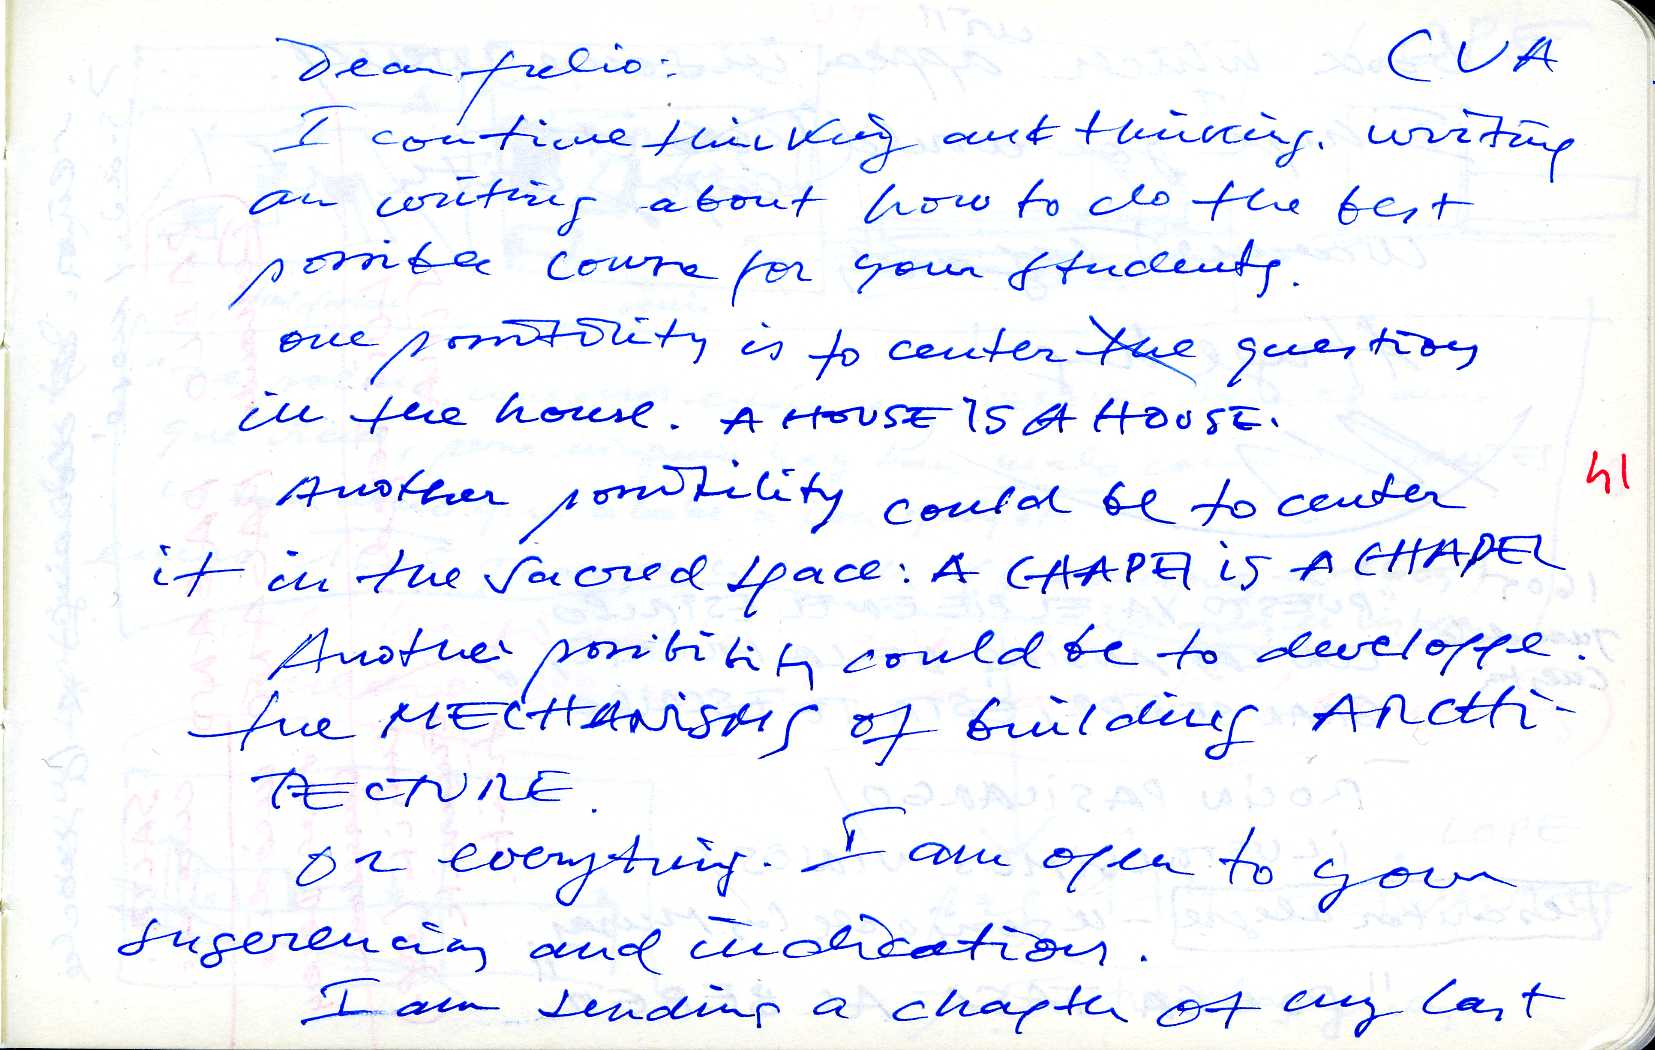 Dear Julio: CUA
I continue thinking and thinking. writing
an writing about how to do the best
possible course for your students.
one possibility is to center the question
in the house. A HOUSE IS A HOUSE.
41
Another possibility could be to center
it in the sacred space: A CHAPEL is A CHAPEL
Another posibility could be to developpe.
the MECHANISMS of building ARCHI-
TECTURE.
or everything. I am open to your
sugerencias and indications.
I am sending a chapter of my last